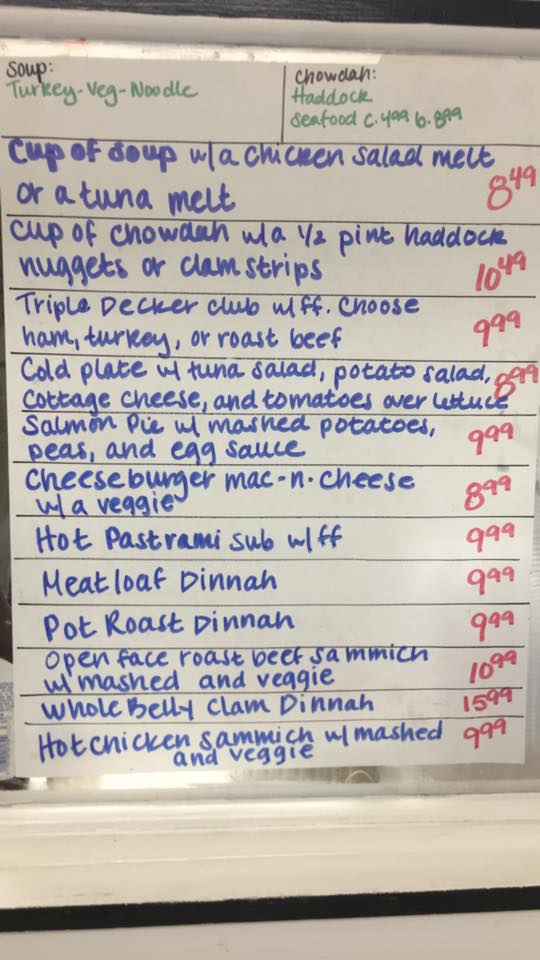 Soup:
Turkey-Veg-Noodle
Chowdah:
Haddock
Seafood c. 4.99 b. 8.99
Cup of soup w/a chicken salad melt
or a tuna melt 8.49
Cup of chowdah w/a 1/2 pint haddock
nuggets or clam strips 10.49
Triple Decker club w/ff. Choose
ham, turkey, or roast beef 9.99
Cold plate w/ tuna salad, potato salad, 8.99
cottage cheese, and tomatoes over lettuce
Salmon Pie w/ mashed potatoes,
peas, and egg sauce 9.99
Cheeseburger mac-n-cheese
w/a veggie 8.99
Hot Pastrami sub w/ff 9.99
Meatloaf Dinnah 9.99
Pot Roast Dinnah 9.99
Open face roast beef sammich
w/ mashed and veggie 10.99
Whole Belly Clam Dinnah 15.99
Hot chicken sammich w/ mashed 9.99
and veggie